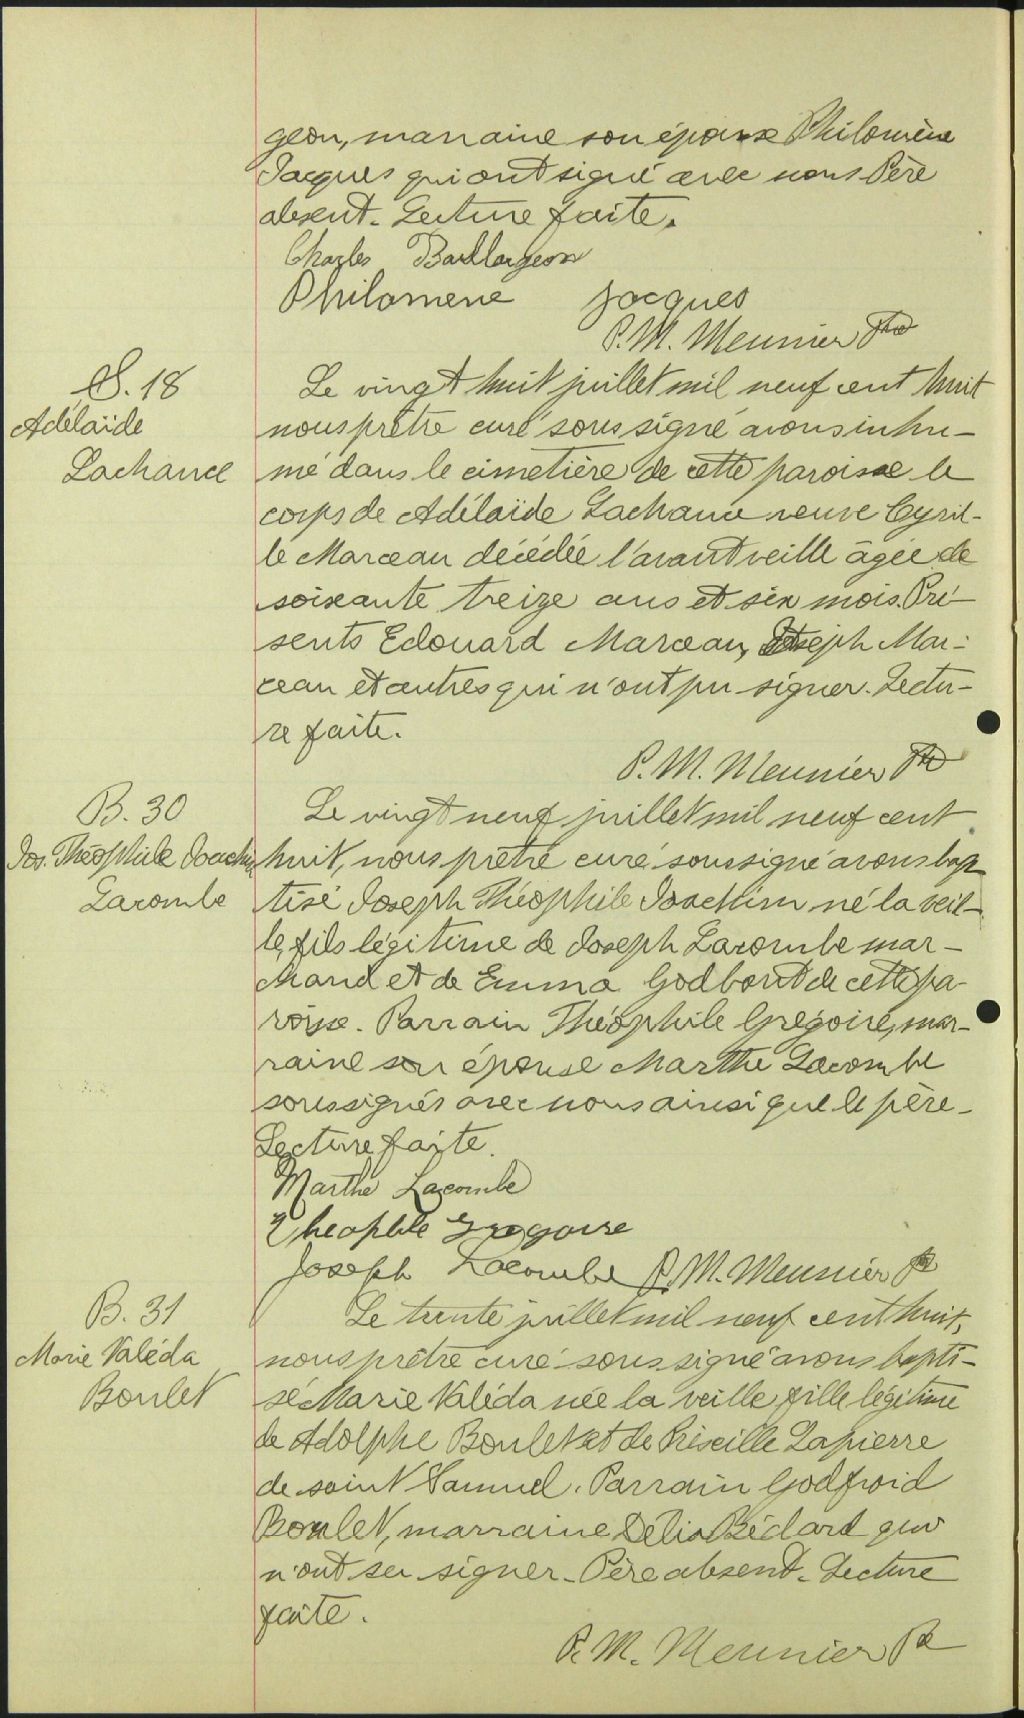 geon, marraine son épouse Philomène
Jacques qui ont signé avec nous Père
absent. Lecture faite.
Charles Baillargeon
Philomene Jacques
P. M. Meunier Ptre
S. 18
Adélaïde
Lachance
Le vingt huit juillet mil neuf cent huit
nous prêtre curé soussigné avons inhu-
mé dans le cimetière de cette paroisse le
corps de Adélaïde Lachance veuve Cyril-
le Marceau décédée l'avant veille âgée de
soixante treize ans et six mois. Pré-
sents Edouard Marceau, Joseph Mar-
ceau et autres qui n'ont pu signer. Lectu-
re faite.
P. M. Meunier Ptre
B. 30
Jos. Théophile Joachim
Lacombe
Le vingt neuf juillet mil neuf cent
huit, nous prêtre curé soussigné avons bap
tisé Joseph Théophile Joachim né la veil-
le, fils légitime de Joseph Lacombe mar-
chand et de Emma Godbout de cette pa-
roisse. Parrain Théophile Grégoire, mar-
raine son épouse Marthe Lacombe
soussignés avec nous ainsi que le père.
Lecture faite.
Marthe Lacombe
Theophile Gregoire
Joseph Lacombe P. M. Meunier Ptre
B. 31
Marie Valéda
Boulet
Le trente juillet mil neuf cent huit,
nous prêtre curé soussigné avons bapti-
sé Marie Valéda née la veille fille légitime
de Adolphe Boulet et de Priscille Lapierre
de saint Samuel. Parrain Godfroid
Boulet, marraine Délia Bédard qui
n'ont su signer. Père absent. Lecture
faite.
P. M. Meunier Ptre